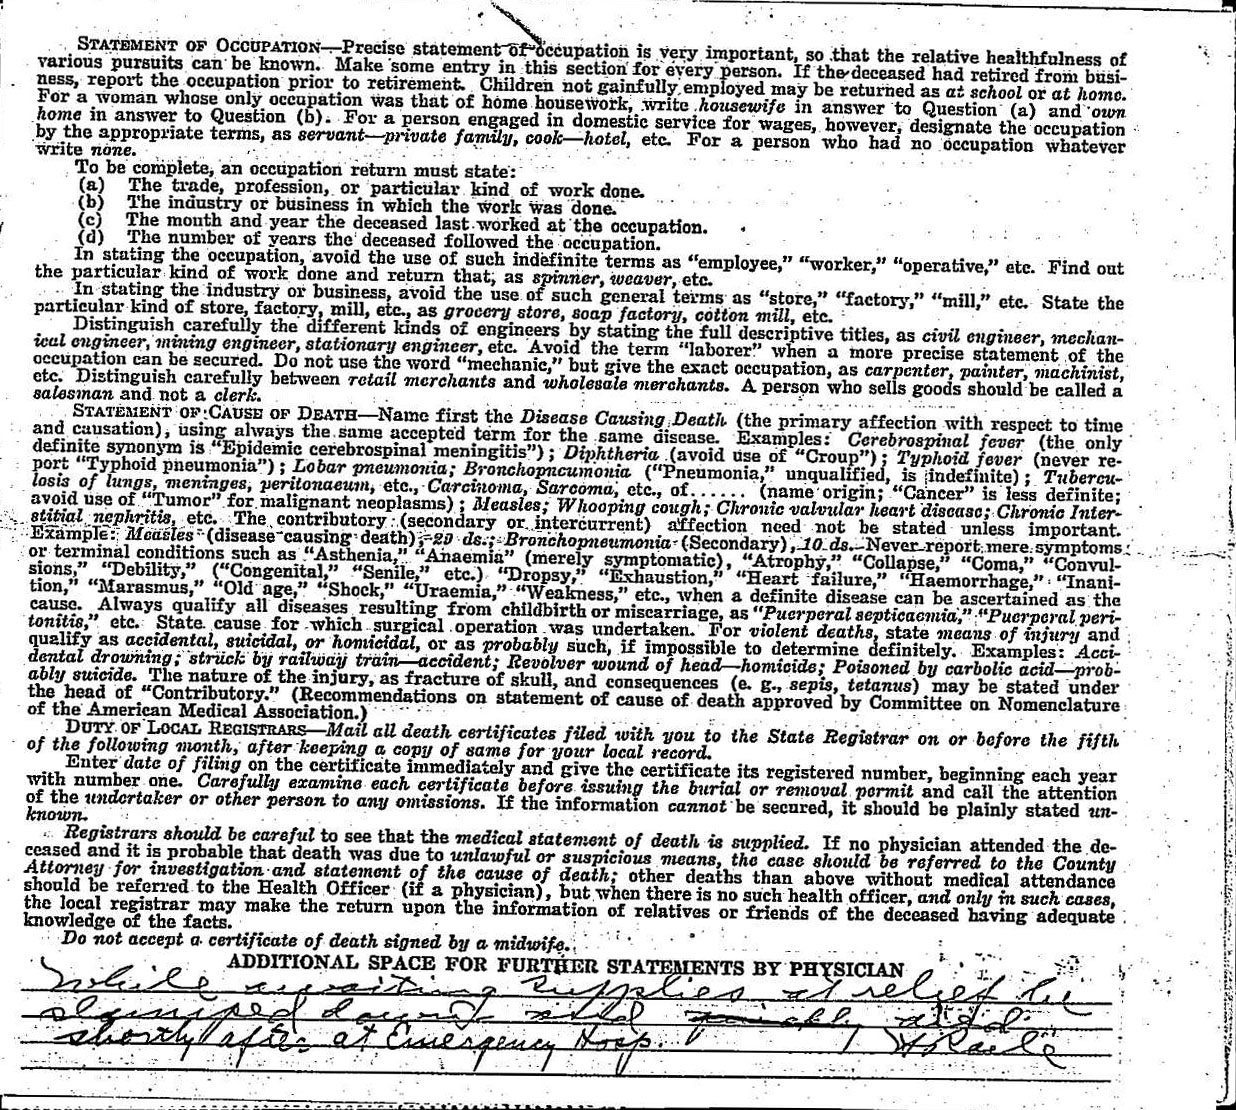 STATEMENT OF OCCUPATION—Precise statement of occupation is very important, so that the relative healthfulness of
various pursuits can be known. Make some entry in this section for every person. If the deceased had retired from busi-
ness, report the occupation prior to retirement. Children not gainfully employed may be returned as at school or at home.
For a woman whose only occupation was that of home housework, write housewife in answer to Question (a) and own
home in answer to Question (b). For a person engaged in domestic service for wages, however, designate the occupation
by the appropriate terms, as servant—private family, cook—hotel, etc. For a person who had no occupation whatever
write none.
To be complete, an occupation return must state:
(a) The trade, profession, or particular kind of work done.
(b) The industry or business in which the work was done.
(c) The month and year the deceased last worked at the occupation.
(d) The number of years the deceased followed the occupation.
In stating the occupation, avoid the use of such indefinite terms as "employee," "worker," "operative," etc. Find out
the particular kind of work done and return that, as spinner, weaver, etc.
In stating the industry or business, avoid the use of such general terms as "store," "factory," "mill," etc. State the
particular kind of store, factory, mill, etc., as grocery store, soap factory, cotton mill, etc.
Distinguish carefully the different kinds of engineers by stating the full descriptive titles, as civil engineer, mechan-
ical engineer, mining engineer, stationary engineer, etc. Avoid the term "laborer" when a more precise statement of the
occupation can be secured. Do not use the word "mechanic," but give the exact occupation, as carpenter, painter, machinist,
etc. Distinguish carefully between retail merchants and wholesale merchants. A person who sells goods should be called a
salesman and not a clerk.
STATEMENT OF CAUSE OF DEATH—Name first the Disease Causing Death (the primary affection with respect to time
and causation), using always the same accepted term for the same disease. Examples: Cerebrospinal fever (the only
definite synonym is "Epidemic cerebrospinal meningitis"); Diphtheria (avoid use of "Croup"); Typhoid fever (never re-
port "Typhoid pneumonia"); Lobar pneumonia; Bronchopneumonia ("Pneumonia," unqualified, is indefinite); Tubercu-
losis of lungs, meninges, peritonaeum, etc., Carcinoma, Sarcoma, etc., of...... (name origin; "Cancer" is less definite;
avoid use of "Tumor" for malignant neoplasms); Measles; Whooping cough; Chronic valvular heart disease; Chronic Inter-
stitial nephritis, etc. The contributory (secondary or intercurrent) affection need not be stated unless important.
Example: Measles (disease causing death), 29 ds.; Bronchopneumonia (Secondary), 10 ds. Never report mere symptoms
or terminal conditions such as "Asthenia," "Anaemia" (merely symptomatic), "Atrophy," "Collapse," "Coma," "Convul-
sions," "Debility," ("Congenital," "Senile," etc.) "Dropsy," "Exhaustion," "Heart failure," "Haemorrhage," "Inani-
tion," "Marasmus," "Old age," "Shock," "Uraemia," "Weakness," etc., when a definite disease can be ascertained as the
cause. Always qualify all diseases resulting from childbirth or miscarriage, as "Puerperal septicaemia," "Puerperal peri-
tonitis," etc. State cause for which surgical operation was undertaken. For violent deaths, state means of injury and
qualify as accidental, suicidal, or homicidal, or as probably such, if impossible to determine definitely. Examples: Acci-
dental drowning; struck by railway train—accident; Revolver wound of head—homicide; Poisoned by carbolic acid—prob-
ably suicide. The nature of the injury, as fracture of skull, and consequences (e. g., sepis, tetanus) may be stated under
the head of "Contributory." (Recommendations on statement of cause of death approved by Committee on Nomenclature
of the American Medical Association.)
DUTY OF LOCAL REGISTRARS—Mail all death certificates filed with you to the State Registrar on or before the fifth
of the following month, after keeping a copy of same for your local record.
Enter date of filing on the certificate immediately and give the certificate its registered number, beginning each year
with number one. Carefully examine each certificate before issuing the burial or removal permit and call the attention
of the undertaker or other person to any omissions. If the information cannot be secured, it should be plainly stated un-
known.
Registrars should be careful to see that the medical statement of death is supplied. If no physician attended the de-
ceased and it is probable that death was due to unlawful or suspicious means, the case should be referred to the County
Attorney for investigation and statement of the cause of death; other deaths than above without medical attendance
should be referred to the Health Officer (if a physician), but when there is no such health officer, and only in such cases,
the local registrar may make the return upon the information of relatives or friends of the deceased having adequate
knowledge of the facts.
Do not accept a certificate of death signed by a midwife.
ADDITIONAL SPACE FOR FURTHER STATEMENTS BY PHYSICIAN
While awaiting supplies at relief he
slumped down and died
shortly after at Emergency Hosp.